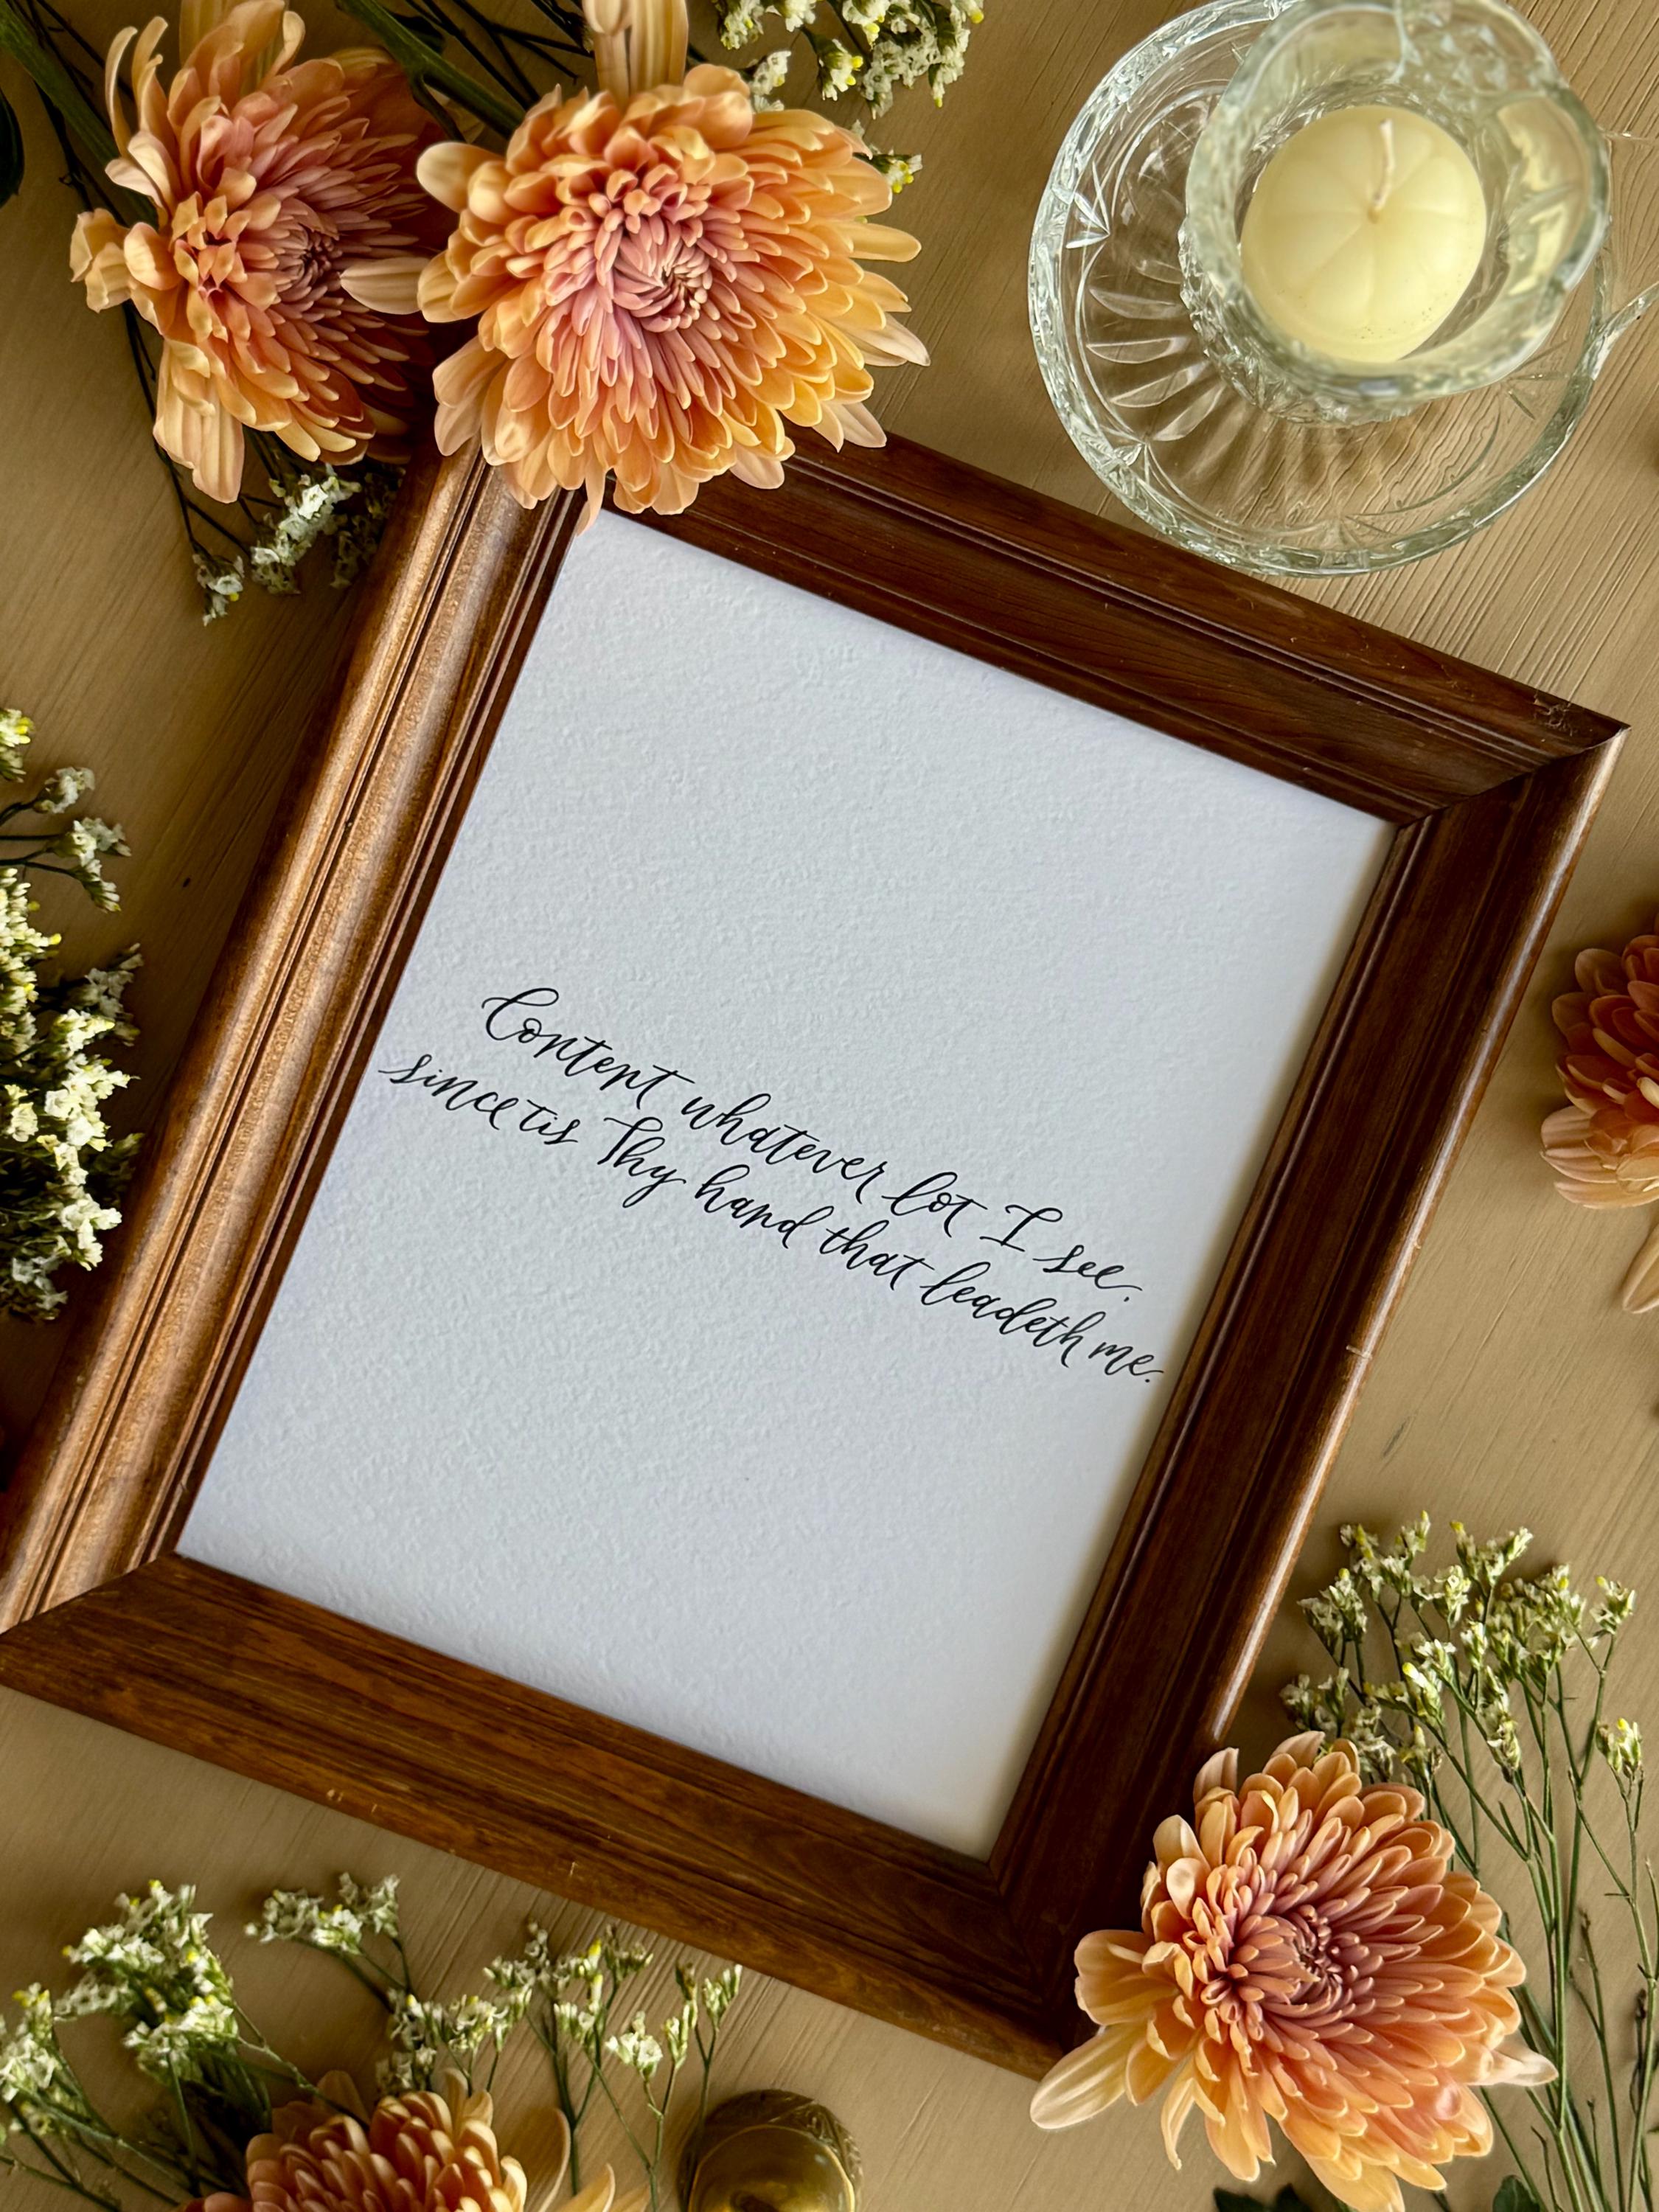 Content whatever lot I see.
since tis Thy hand that leadeth me.